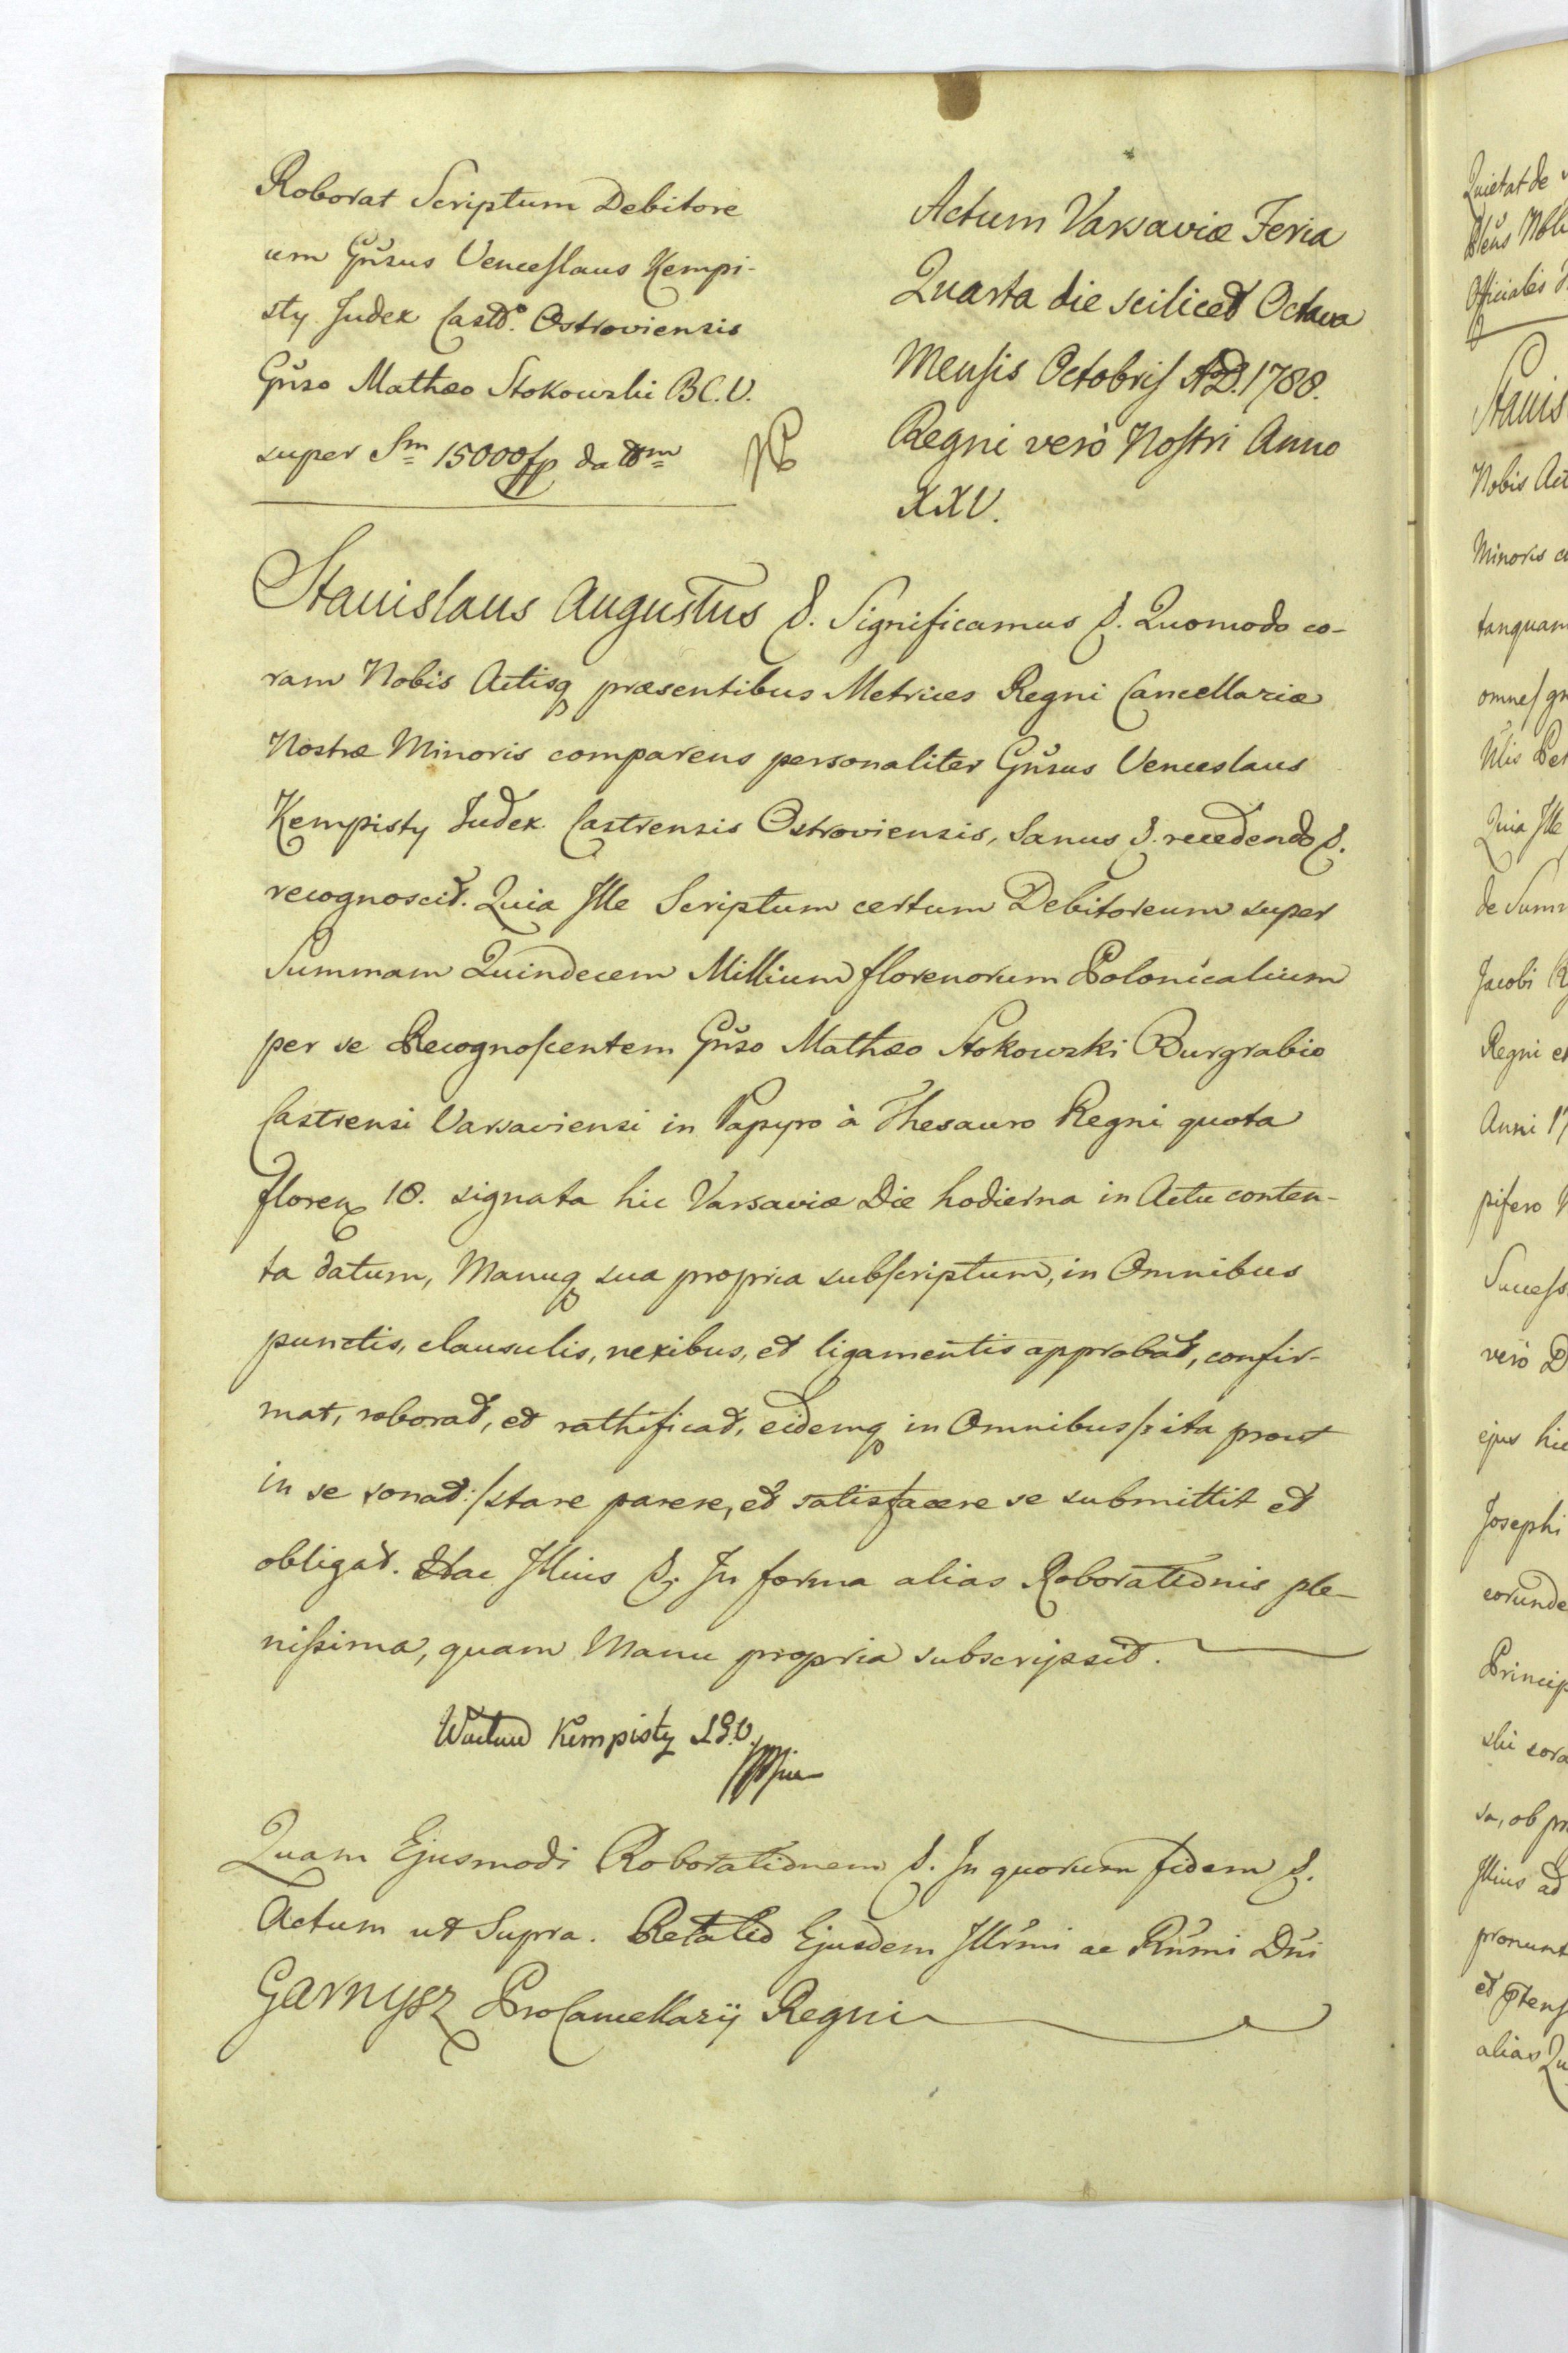 Roborat Scriptum Debitore
um Gñsus Venceslaus Kempi-
sty Judex Castr. Ostroviensis
Gñso Mathæo Stokowski B.C.V.
super Sm 15000 fp datum
Actum Varsaviæ Feria
Quarta die scilicet Octava
Mensis Octobris A.D. 1788.
Regni verò Nostri Anno
XXV.
Stanislaus Augustus &. Significamus &. Quomodo co-
ram Nobis Actisq præsentibus Metrices Regni Cancellariæ
Nostræ Minoris comparens personaliter Gñsus Venceslaus
Kempisty Judex Castrensis Ostroviensis, Sanus &. recedendo &.
recognoscit. Quia Ille Scriptum certum Debitoreum super
Summam Quindecem Millium florenorum Polonicalium
per se Recognoscentem Gñso Mathæo Stokowski Burgrabio
Castrensi Varsaviensi in Papyro à Thesauro Regni quota
floren 10. signata hic Varsaviæ Die hodierna in Actu conten-
ta datum, Manuq sua propria subscriptum, in Omnibus
punctis, clausulis, nexibus, et ligamentis approbat, confir-
mat, roborat, et rathificat, eidemq in Omnibus /: ita prout
in se sonat :/ stare parere, et satisfacere se submittit et
obligat. Hac Illius &. In forma alias Roborationis ple-
nissima, quam Manu propria subscripsit.
Wacław Kempisty S.G.O.
Quam Ejusmodi Roborationem &. In quorum fidem &.
Actum ut Supra. Relatio Ejusdem Illrmi ac Rñmi Dñi
Garnysz ProCancellarij Regni
Quietat de
Officiales
Stanis
Nobis Act
Minoris c
tanquam
omnes gn
Quia Ille
de Sum
Jacobi R
Regni et
Anni 17
pifero
Success
verò D
ejus hic
Josephi
eorunde
Princip
ski cora
sa, ob pr
Illius ad
pronunt
et
alias Qu